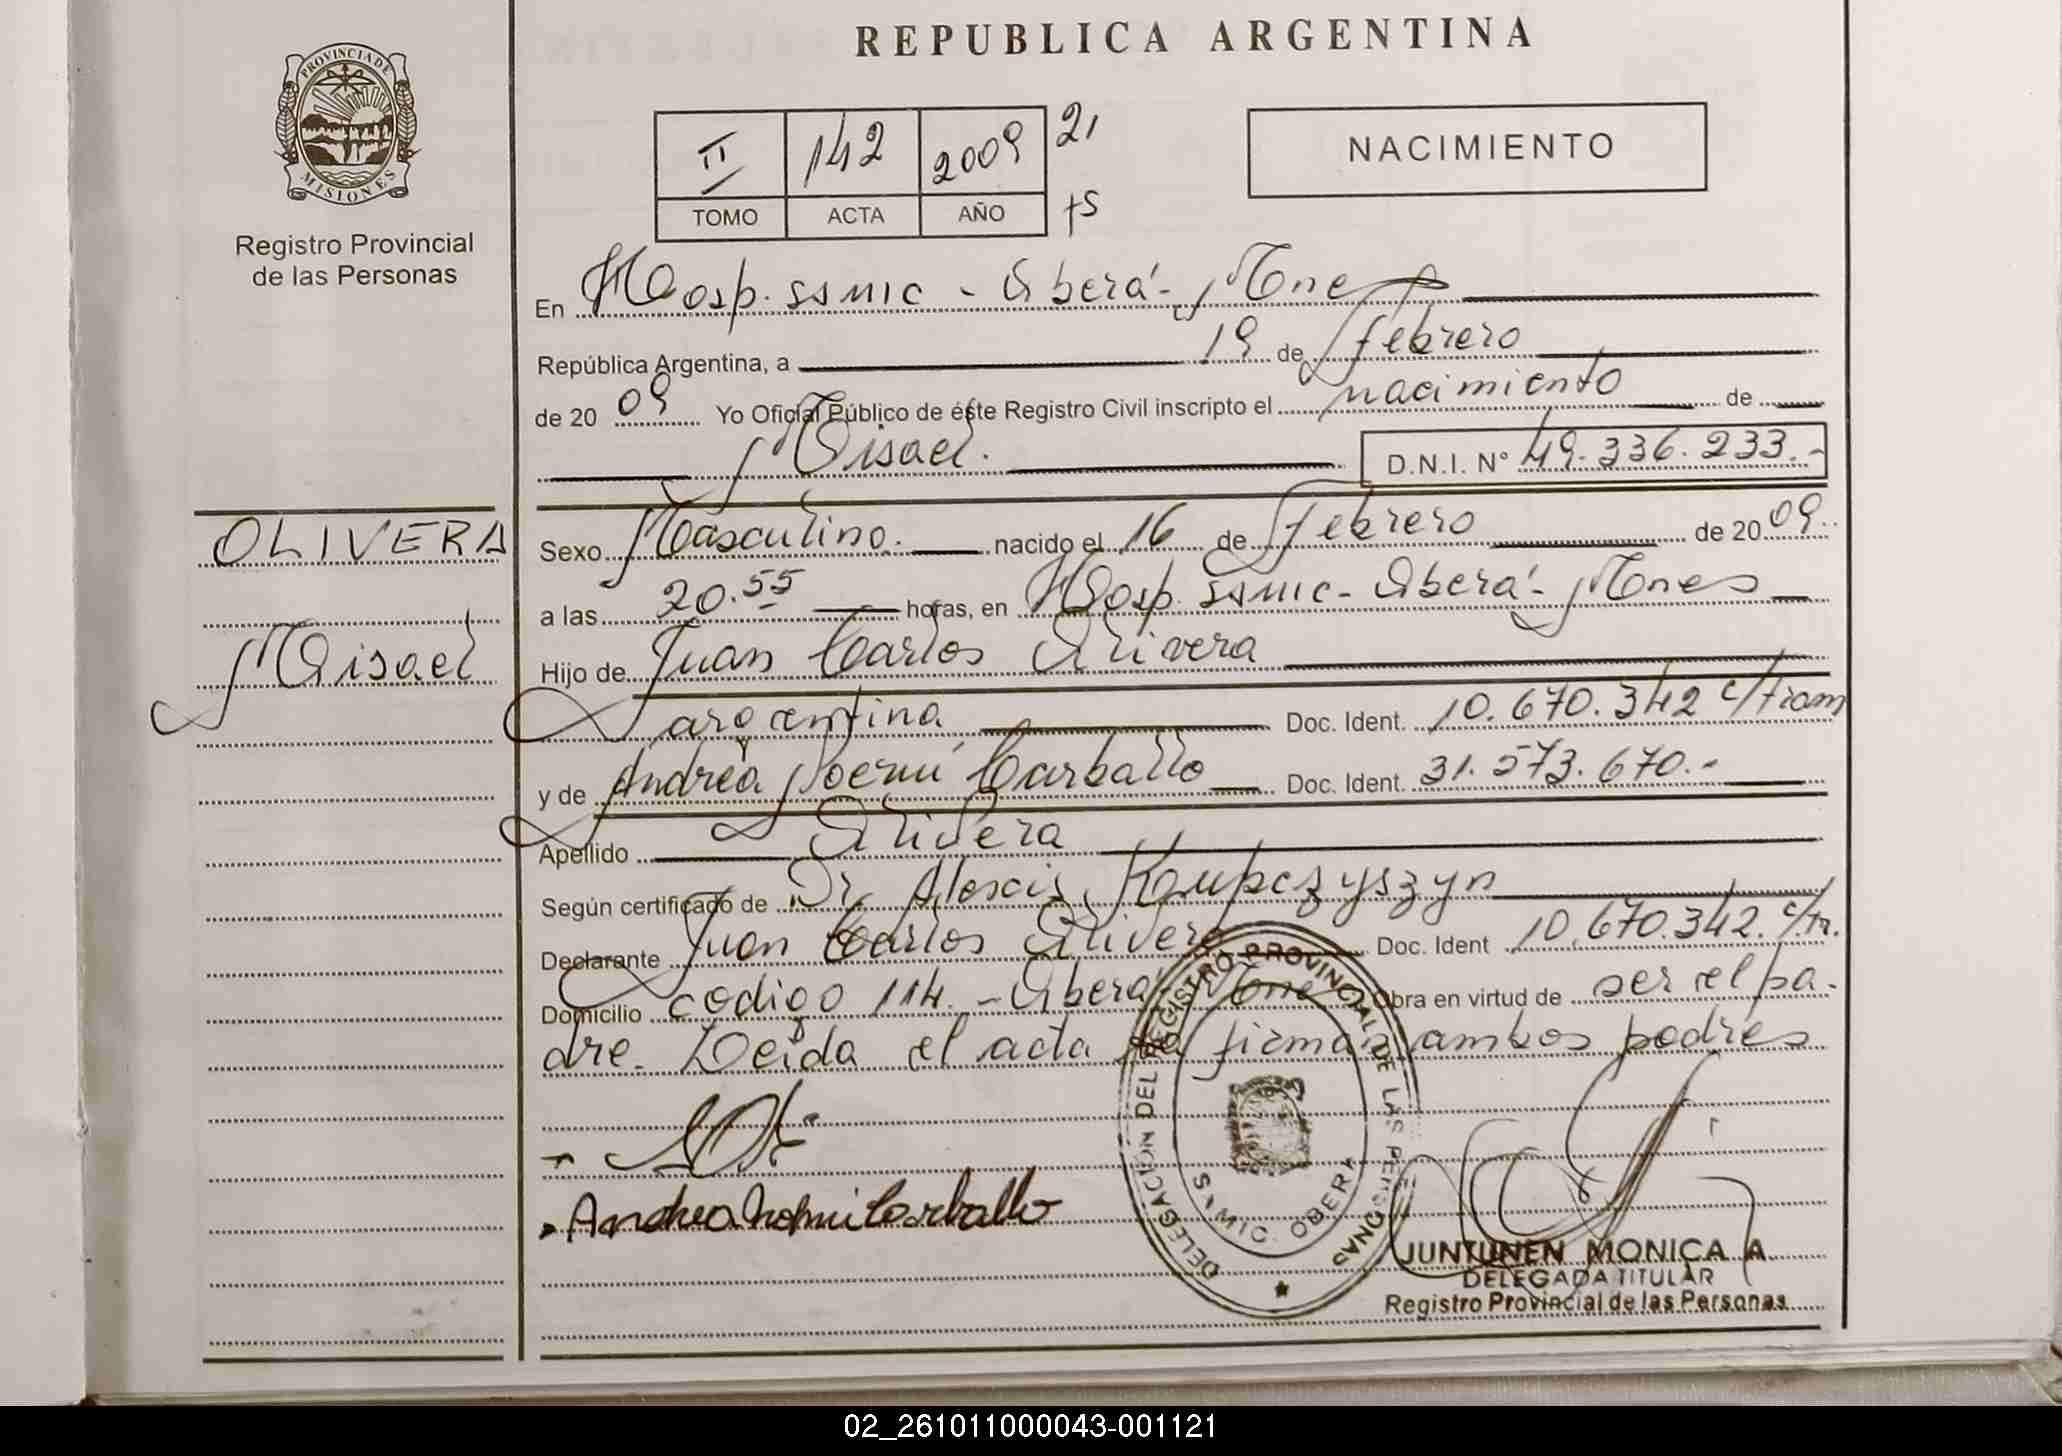 REPUBLICA ARGENTINA
PROVINCIA DE
MISIONES
Registro Provincial
de las Personas
II 142 2009 21
TOMO ACTA AÑO
NACIMIENTO
En Hosp. SAMIC - Oberá - Mnes
República Argentina, a 19 de febrero
de 2009 Yo Oficial Público de éste Registro Civil inscripto el nacimiento de
Misael. D.N.I. Nº 49.336.233.-
OLIVERA
Misael
Sexo Masculino. nacido el 16 de febrero de 2009.
a las 20.55 horas, en Hosp. SAMIC - Oberá - Mnes
Hijo de Juan Carlos Olivera
argentina Doc. Ident. 10.670.342 c/tram
y de Andrea Noemí Carballo Doc. Ident. 31.573.670.-
Apellido Olivera
Según certificado de Dr. Alexis Kaupczyszyn
Declarante Juan Carlos Olivera Doc. Ident 10.670.342. c/tr.
Domicilio codigo 114. - Oberá - Mnes Obra en virtud de ser el pa-
dre. Leída el acta la firman ambos padres
Andrea Noemi Carballo
DELEGACION DEL REGISTRO PROVINCIAL DE LAS PERSONAS
SAMIC. OBERA
JUNTUNEN MONICA A.
DELEGADA TITULAR
Registro Provincial de las Personas
02_261011000043-001121